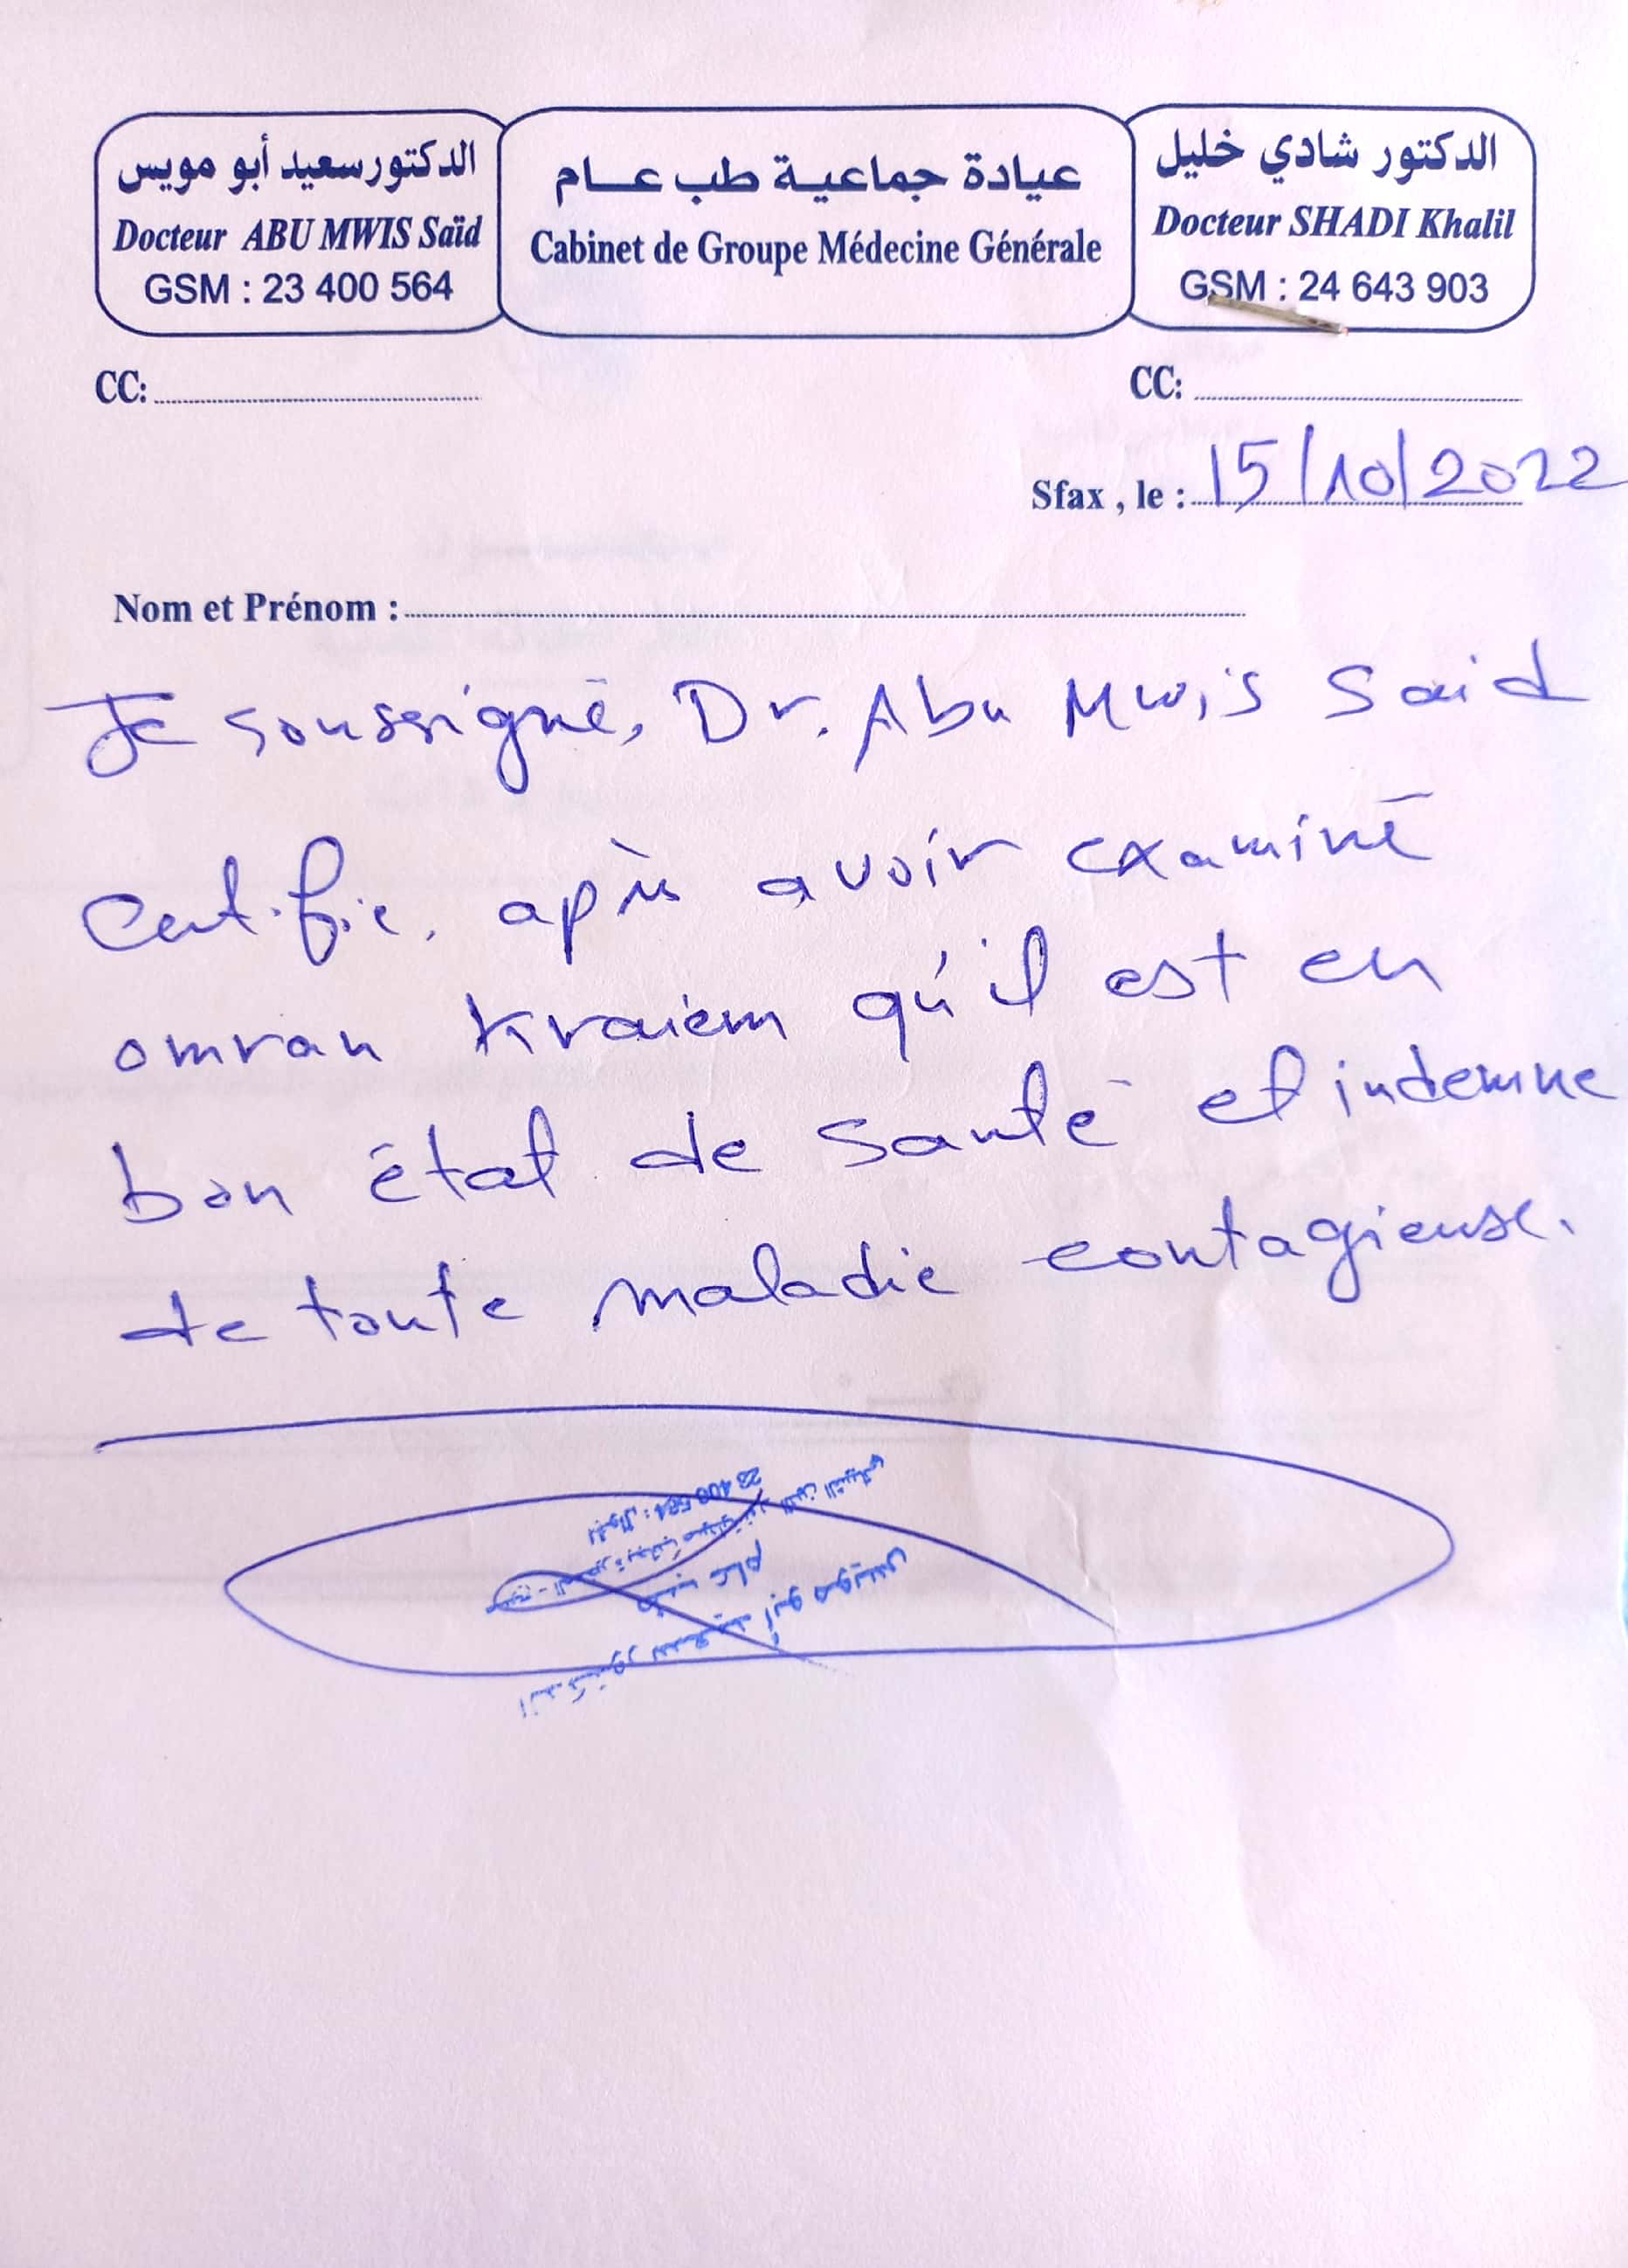 الدكتور سعيد أبو مويس
Docteur ABU MWIS Saïd
GSM : 23 400 564
عيادة جماعية طب عام
Cabinet de Groupe Médecine Générale
الدكتور شادي خليل
Docteur SHADI Khalil
GSM : 24 643 903
CC:
CC:
Sfax , le : 15/10/2022
Nom et Prénom :
Je soussigné, Dr. Abu Mwis Said
certifie, après avoir examiné
omran Kraiem qu'il est en
bon état de santé et indemne
de toute maladie contagieuse.
الدكتور سعيد أبو مويس
طب عام
الجوال : 23 400 564